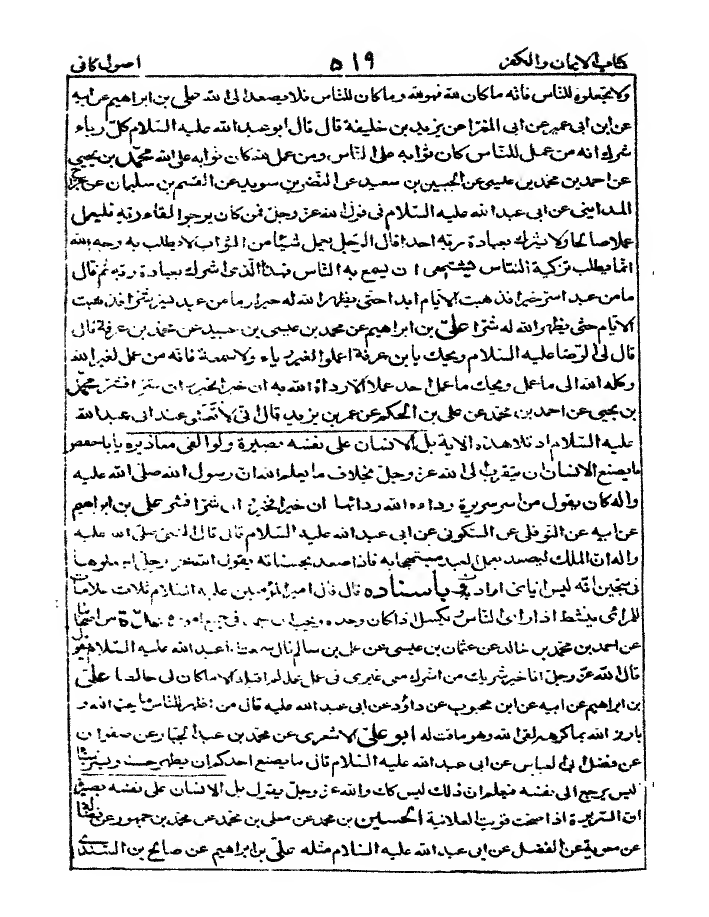 كتاب الايمان والكفر ٥١٩ اصول كافى
ولا تجعلوه للناس فانه ما كان لله فهو لله وما كان للناس فلا يصعد الى الله على بن ابراهيم عن ابيه
عن ابن ابى عمير عن ابى المغرا عن يزيد بن خليفة قال قال ابو عبد الله عليه السلام كل رياء
شرك انه من عمل للناس كان ثوابه على الناس ومن عمل لله كان ثوابه على الله محمد بن يحيى
عن احمد بن محمد بن عيسى عن الحسين بن سعيد عن النضر بن سويد عن القسم بن سليمان عن جراح
المداينى عن ابى عبد الله عليه السلام فى قول الله عز وجل فمن كان يرجوا لقاء ربه فليعمل
عملا صالحا ولا يشرك بعبادة ربه احدا قال الرجل يعمل شيئا من الثواب لا يطلب به وجه الله
انما يطلب تزكية الناس يشتهى ان يسمع به الناس فهذا الذى اشرك بعبادة ربه ثم قال
ما من عبد اسر خيرا فذهبت الايام ابدا حتى يظهر الله له خيرا وما من عبد يسر شرا فذهبت
الايام حتى يظهر الله له شرا على بن ابراهيم عن محمد بن عيسى بن عبيد عن محمد بن عرفة قال
قال لى الرضا عليه السلام ويحك يا بن عرفة اعملوا لغير رياء ولا سمعة فانه من عمل لغير الله
وكله الله الى ما عمل ويحك ما عمل احد عملا الا رداه الله به ان خيرا فخير ان شرا فشر محمد
بن يحيى عن احمد بن محمد عن على بن الحكم عن عمر بن يزيد قال انى لاتعشى عند ابى عبد الله
عليه السلام اذ تلا هذه الاية بل الانسان على نفسه بصيرة ولو القى معاذيره يا با حفص
ما يصنع الانسان ان يتقرب الى الله عز وجل بخلاف ما يعلم الله ان رسول الله صلى الله عليه
واله كان يقول من اسر سريرة رداه الله رداءها ان خيرا فخير ان شرا فشر على بن ابراهيم
عن ابيه عن النوفلى عن السكونى عن ابى عبد الله عليه السلام قال قال النبى صلى الله عليه
واله ان الملك ليصعد بعمل العبد مبتهجا به فاذا صعد بحسناته يقول الله عز وجل اجعلوها
فى سجين انه ليس اياى اراد به وباسناده قال قال امير المؤمنين عليه السلام ثلاث علامات
للمرائى ينشط اذا راى الناس ويكسل اذا كان وحده ويحب ان يحمد فى جميع اموره عدة من اصحابنا
عن احمد بن محمد بن خالد عن عثمان بن عيسى عن على بن سالم قال سمعت ابا عبد الله عليه السلام يقول
قال الله عز وجل انا خير شريك من اشرك معى غيرى فى عمل عمله لم اقبله الا ما كان لى خالصا على
بن ابراهيم عن ابيه عن ابن محبوب عن داود عن ابى عبد الله عليه قال من اظهر للناس ما يحب الله و
بارز الله بما كرهه لقى الله وهو ماقت له ابو على الاشعرى عن محمد بن عبد الجبار عن صفوان
عن فضل ابى العباس عن ابى عبد الله عليه السلام قال ما يصنع احدكم ان يظهر حسنا ويسر سيئا
اليس يرجع الى نفسه فيعلم ان ذلك ليس كك والله عز وجل يقول بل الانسان على نفسه بصيرة
ان السريرة اذا صحت قويت العلانية الحسين بن محمد عن معلى بن محمد عن محمد بن جمهور عن فضالة
عن معوية عن الفضل عن ابى عبد الله عليه السلام مثله على بن ابراهيم عن صالح بن السندى